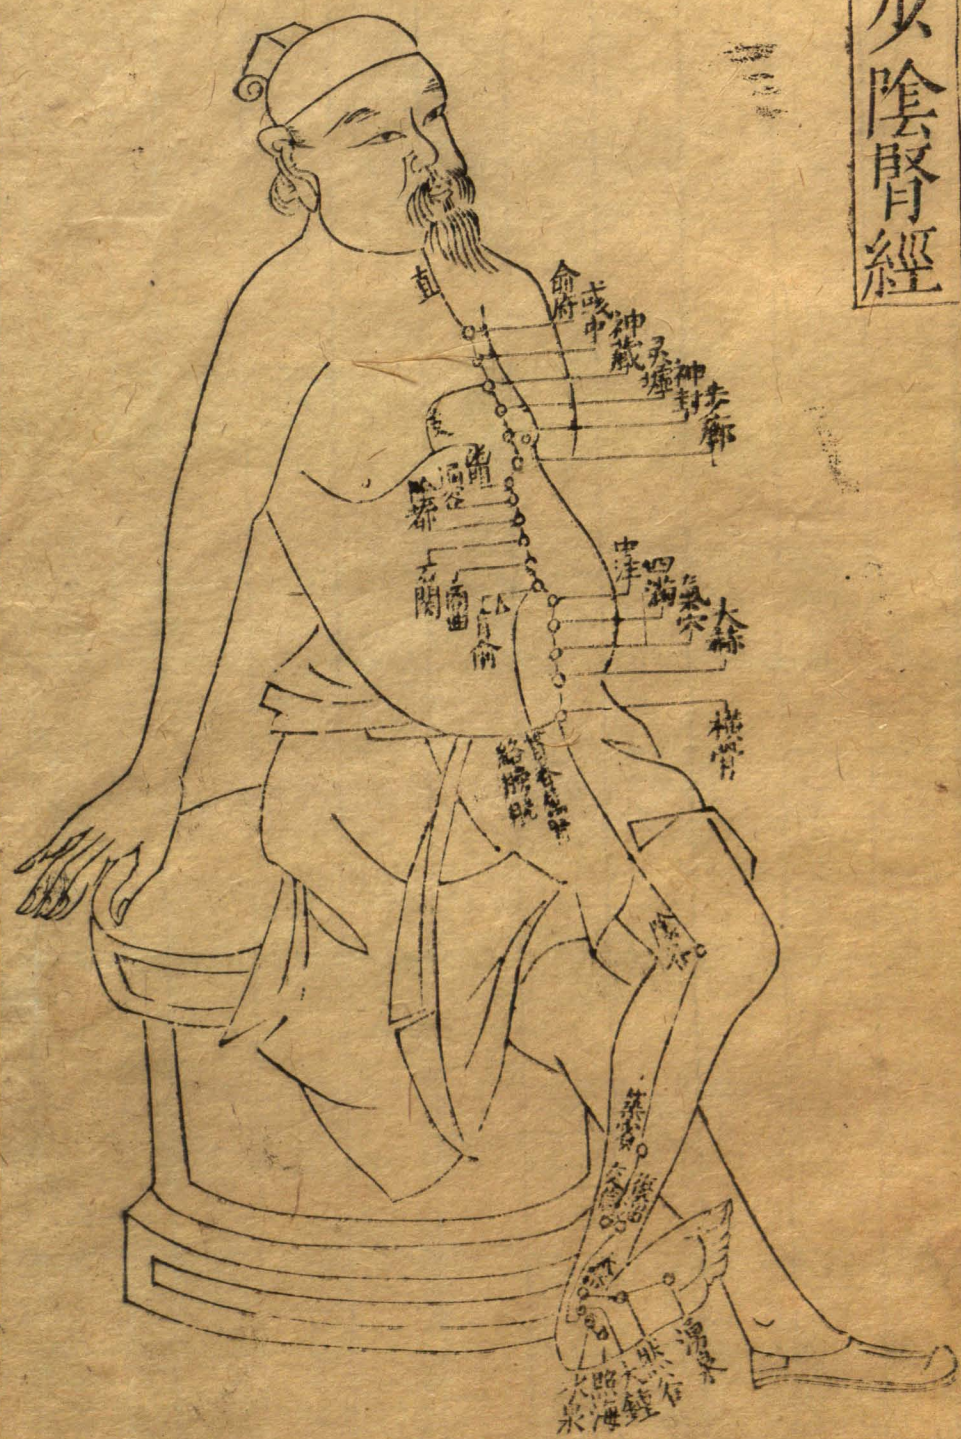 少陰腎經
俞府
彧中
神藏
灵墟
神封
步廊
直
支
幽門
通谷
陰都
石関
商曲
肓俞
中注
四満
氣穴
大赫
橫骨
絡膀胱
築賓
交信
復留
湧泉
然谷
大鍾
照海
水泉